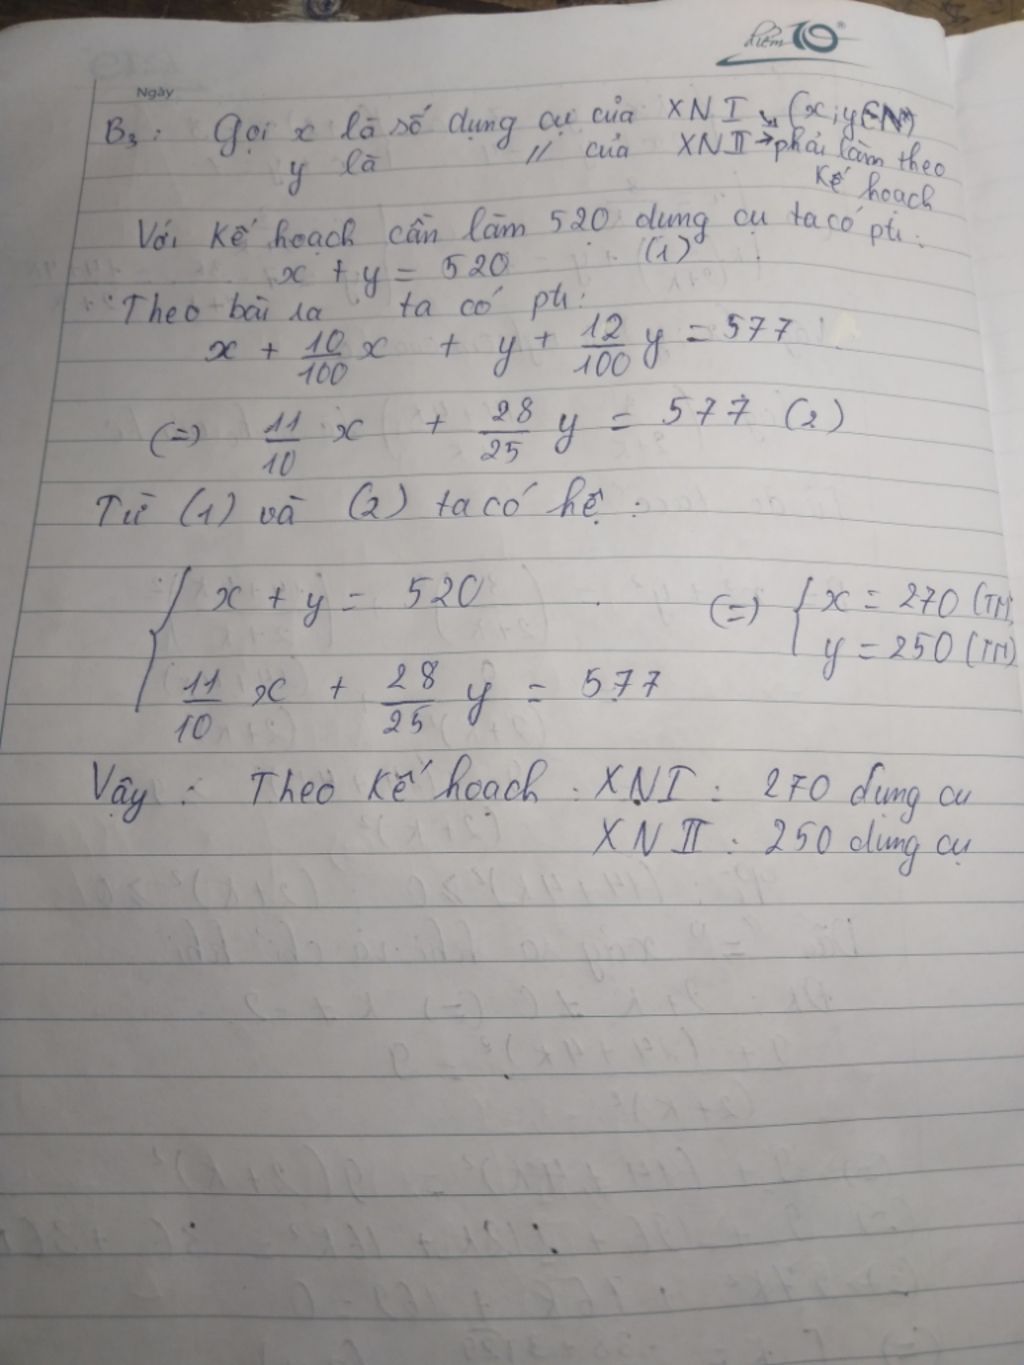 điểm 10
Ngày
B3: Gọi x là số dụng cụ của XN I (x; y ∈ N*)
y là // của XN II → phải làm theo
Kế hoạch
Với Kế hoạch cần làm 520 dung cụ ta có pt:
x + y = 520 (1)
Theo bài ra ta có pt:
x + 10/100 x + y + 12/100 y = 577
(=) 11/10 x + 28/25 y = 577 (2)
Từ (1) và (2) ta có hệ:
{ x + y = 520 (=) { x = 270 (TM)
y = 250 (TM)
11/10 x + 28/25 y = 577
Vậy: Theo Kế hoạch: XN I: 270 dụng cụ
XN II: 250 dụng cụ